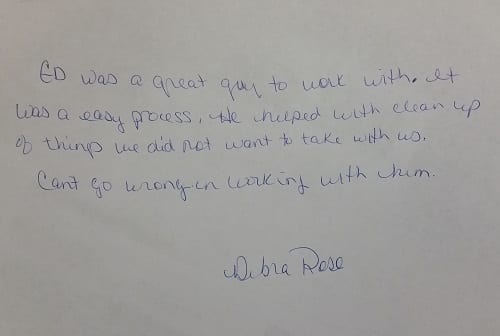 ED was a great guy to work with. It
was a easy process. He helped with clean up
of things we did not want to take with us.
Cant go wrong in working with him.
Debra Rose